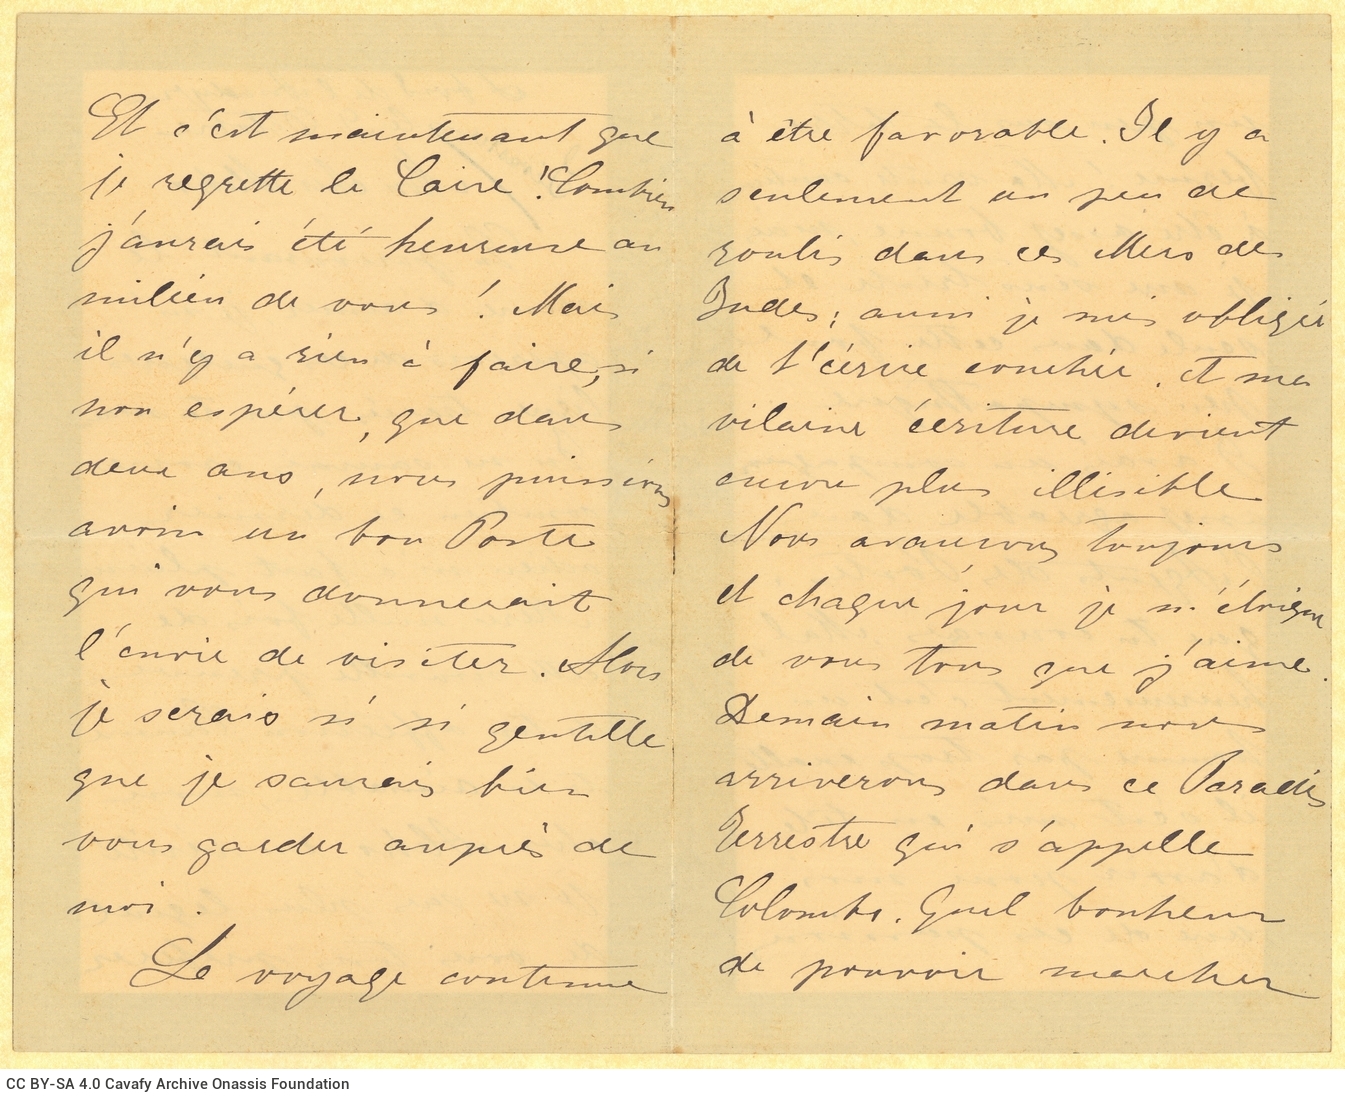 Et c'est maintenant que
je regrette le Caire! Combien
j'aurais été heureuse au
milieu de vous! Mais
il n'y a rien à faire, si
non espérer, que dans
deux ans, nous puissions
avoir un bon Poste
qui vous donnerait
l'envie de visiter. Alors
je serais si si gentille
que je saurais bien
vous garder auprès de
moi.
Le voyage continue
à être favorable. Il y a
seulement un peu de
roulis dans ces Mers des
Indes; aussi je suis obligée
de t'écrire couchée. et ma
vilaine écriture devient
encore plus illisible
Nous avançons toujours
et chaque jour je m'éloigne
de vous tous que j'aime.
Demain matin nous
arriverons dans ce Paradis
Terrestre qui s'appelle
Colombo. Quel bonheur
de pouvoir marcher
CC BY-SA 4.0 Cavafy Archive Onassis Foundation